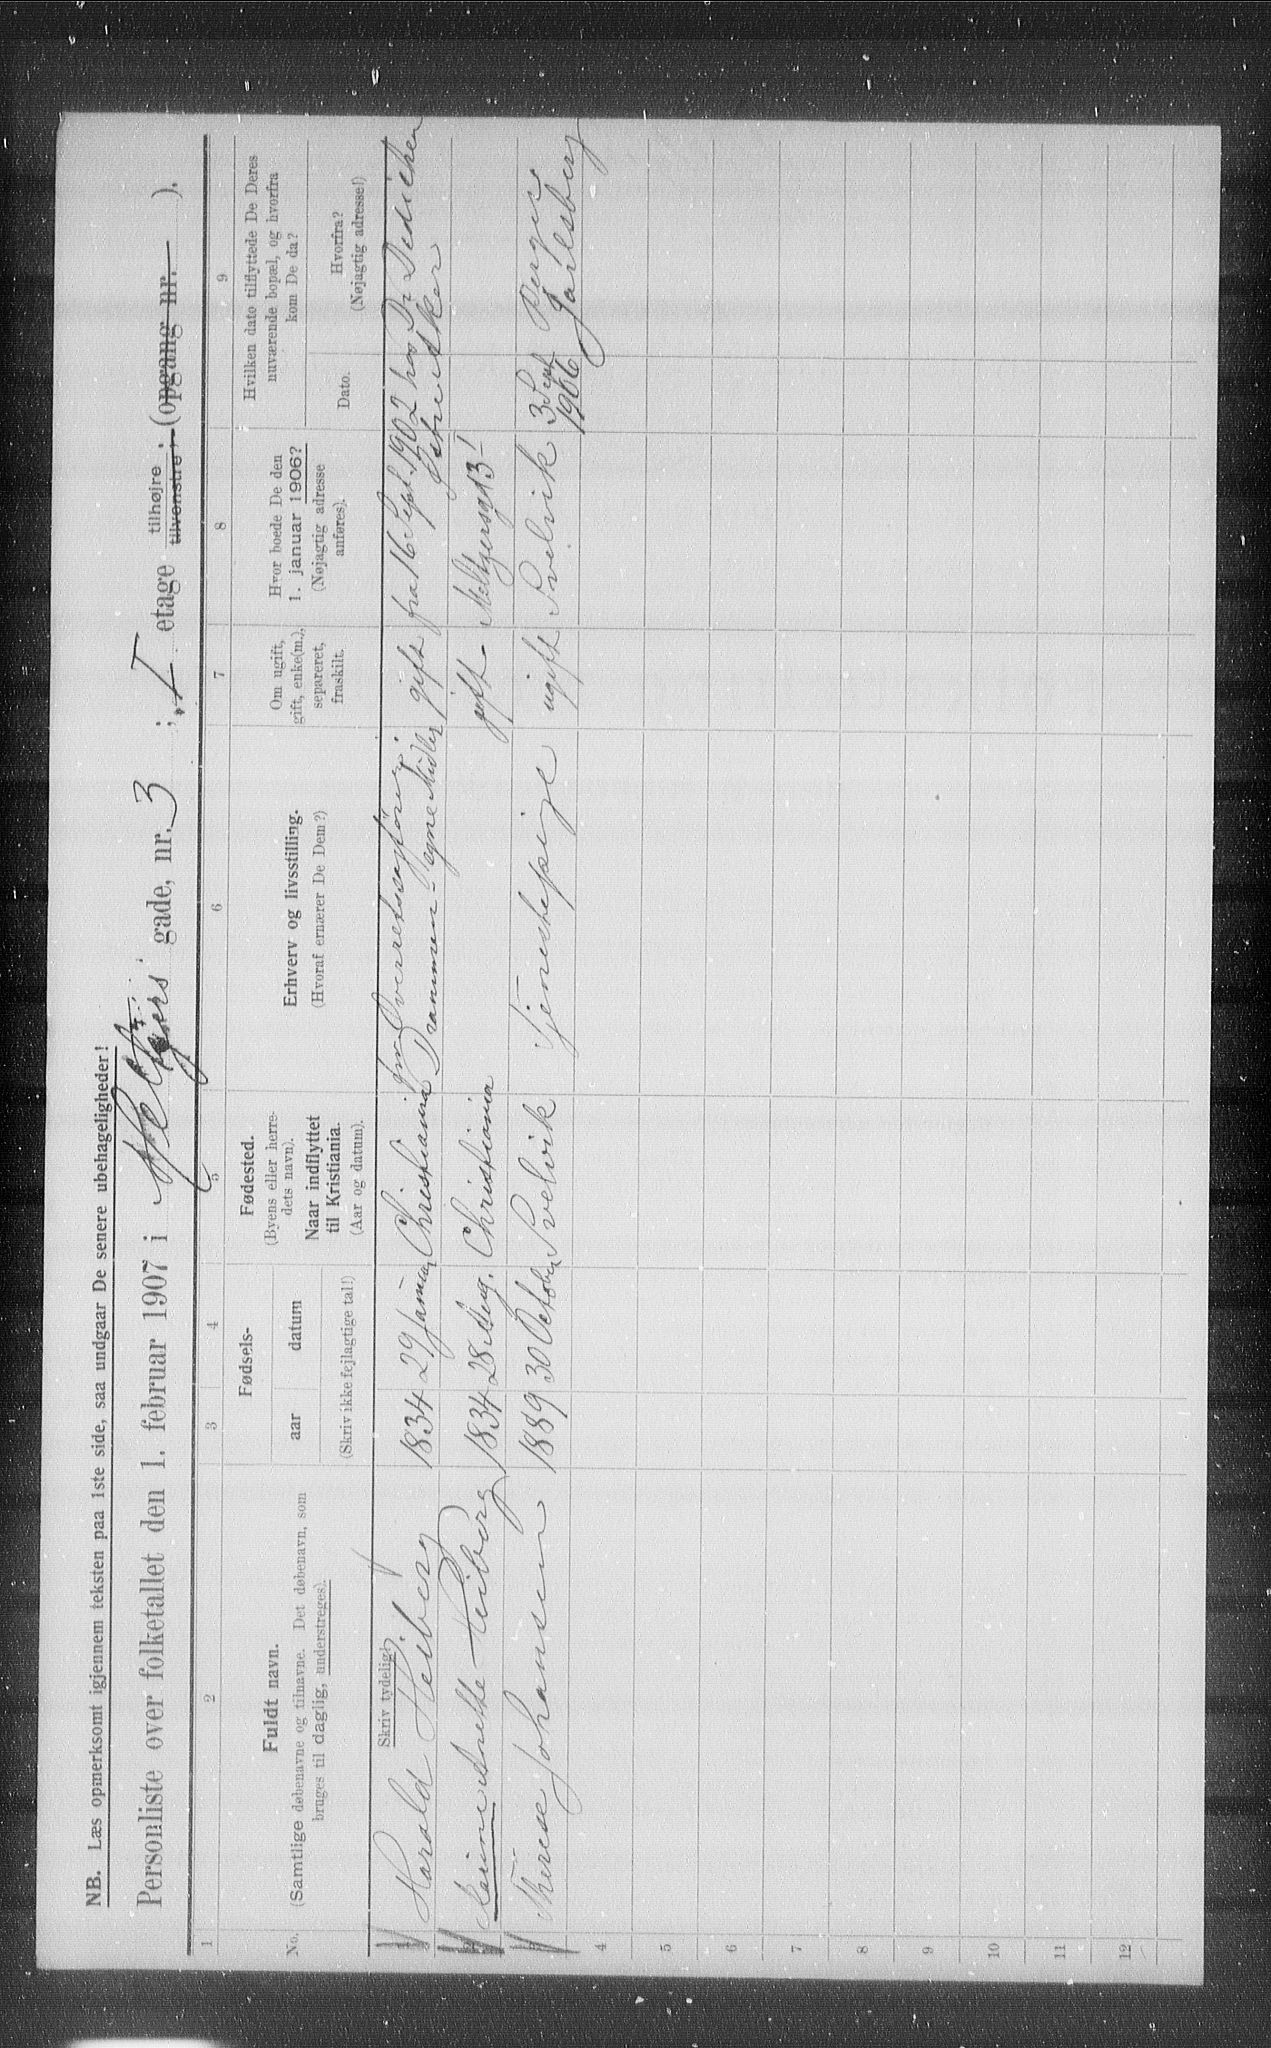 NB. Læs opmerksomt igjennem teksten paa 1ste side, saa undgaar De senere ubehageligheder!
Personliste over folketallet den 1. februar 1907 i Meltzers gade, nr. 3 ; I etage tilhøjre tilvenstre ; (opgang nr. ).
1 2 3 4 5 6 7 8 9
No.
Fuldt navn.
(Samtlige døbenavne og tilnavne. Det døbenavn, som
bruges til daglig, understreges).
Skriv tydelig!
Fødsels-
aar datum
(Skriv ikke fejlagtige tal!)
Fødested.
(Byens eller herre-
dets navn).
Naar indflyttet
til Kristiania.
(Aar og datum).
Erhverv og livsstilling.
(Hvoraf ernærer De Dem?)
Om ugift,
gift, enke(m.),
separeret,
fraskilt.
Hvor boede De den
1. januar 1906?
(Nøjagtig adresse
anføres).
Hvilken dato tilflyttede De Deres
nuværende bopæl, og hvorfra
kom De da?
Dato.
Hvorfra?
(Nøjagtig adresse!)
1 Harald Heiberg 1834 29 Januar Christiania Overretssagfører Drammen - egne Midler gift fra 16 Sept. 1902 hos Dr Dedichen
2 Karine Anette Heiberg 1834 28 Aug. Christiania gift - Meltzersgt 3 I
3 Therese Johansen 1889 30 October Svelvik Tjenestepige ugift Svelvik 3 Sept 1906 Jarlsberg
4
5
6
7
8
9
10
11
12